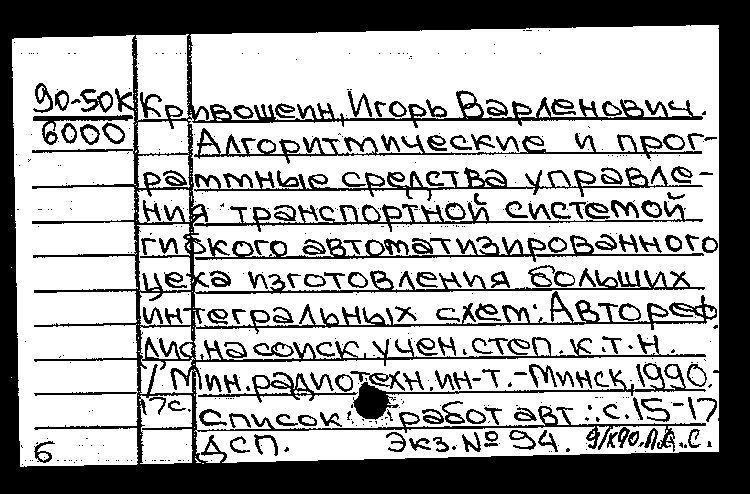 90-50К Кривошеин, Игорь Варленович.
6000 Алгоритмические и прог-
раммные средства управле-
ния транспортной системой
гибкого автоматизированного
цеха изготовления больших
интегральных схем: Автореф.
дис. на соиск. учен. степ. к.т.н.
/ Мин. радиотехн. ин-т.-Минск, 1990.-
17с.
Список работ авт.: с. 15-17
ДСП. Экз. № 94.
б